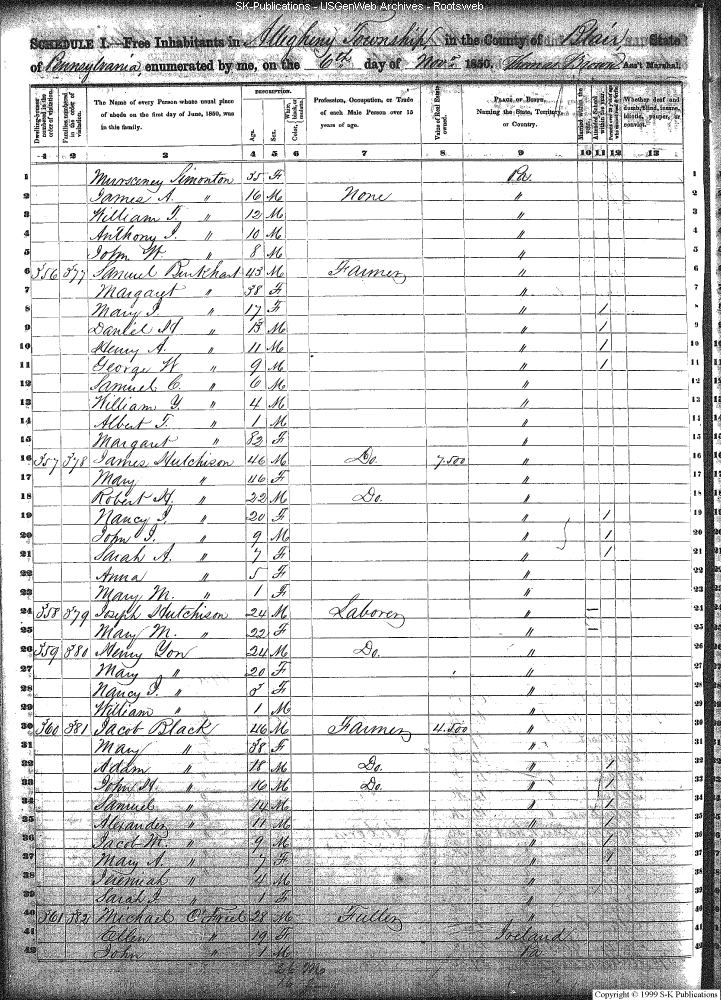 SK-Publications - USGenWeb Archives - Rootsweb
SCHEDULE I.—Free Inhabitants in Allegheny Township, in the County of Blair, State
of Pennsylvania, enumerated by me, on the 6th day of Novr 1850. Thomas Brown Ass't Marshal.
Dwelling-houses numbered in the order of visitation. Families numbered in the order of visitation. The Name of every Person whose usual place of abode on the first day of June, 1850, was in this family. DESCRIPTION. Age. Sex. White, Color, black, or mulatto. Profession, Occupation, or Trade of each Male Person over 15 years of age. Value of Real Estate owned. PLACE OF BIRTH, Naming the State, Territory, or Country. Married within the year. Attended School within the year. Whether deaf and dumb, blind, insane, idiotic, pauper, or convict.
1 2 3 4 5 6 7 8 9 10 11 12 13
1 Simonton 35 F Pa 1
2 James A. " 16 M None " 2
3 William T. " 12 M " 3
4 Anthony J. " 10 M " 4
5 John W. " 8 M " 5
6 356 377 Samuel Burkhart 43 M Farmer " 6
7 Margaret " 38 F " 7
8 Mary J. " 17 F " 1 8
9 Daniel H " 13 M " 1 9
10 Henry A. " 11 M " 1 10
11 George W " 9 M " 1 11
12 Samuel C. " 6 M " 12
13 William Y. " 4 M " 13
14 Albert T. " 1 M " 14
15 Margaret " 82 F " 15
16 357 378 James Hutchison 46 M Do. 7.500 " 16
17 Mary " 46 F " 17
18 Robert H. " 22 M Do. " 18
19 Nancy J. " 20 F " 1 19
20 John J. " 9 M " 1 20
21 Sarah A. " 7 F " 1 21
22 Anna " 5 F " 22
23 Mary M. " 1 F " 23
24 358 379 Joseph Hutchison 24 M Laborer " 24
25 Mary M. " 22 F " 25
26 359 380 Henry Yon 24 M Do. " 26
27 Mary " 20 F " 27
28 Nancy J. " 3 F " 28
29 William " 1 M " 29
30 360 381 Jacob Black 46 M Farmer 4.500 " 30
31 Mary " 38 F " 31
32 Adam " 18 M Do. " 1 32
33 John H. " 16 M Do. " 1 33
34 Samuel " 14 M " 1 34
35 Alexander " 11 M " 1 35
36 Jacob M. " 9 M " 1 36
37 Mary A. " 7 F " 1 37
38 Jeremiah " 4 M " 38
39 Sarah J. " 1 F " 39
40 361 382 Michael O'Friel 28 M Fuller " 40
41 Ellen " 19 F Ireland 41
42 John " 1 M Pa 42
Copyright © 1999 S-K Publications